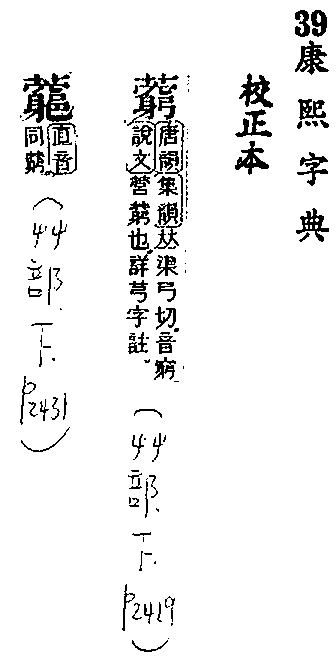 39康熙字典
校正本
藭
唐韻集韻𠀤渠弓切音窮
說文營藭也詳芎字註
(艸部.下.P2419)
直音
同藭
(艸部.下.P2431)